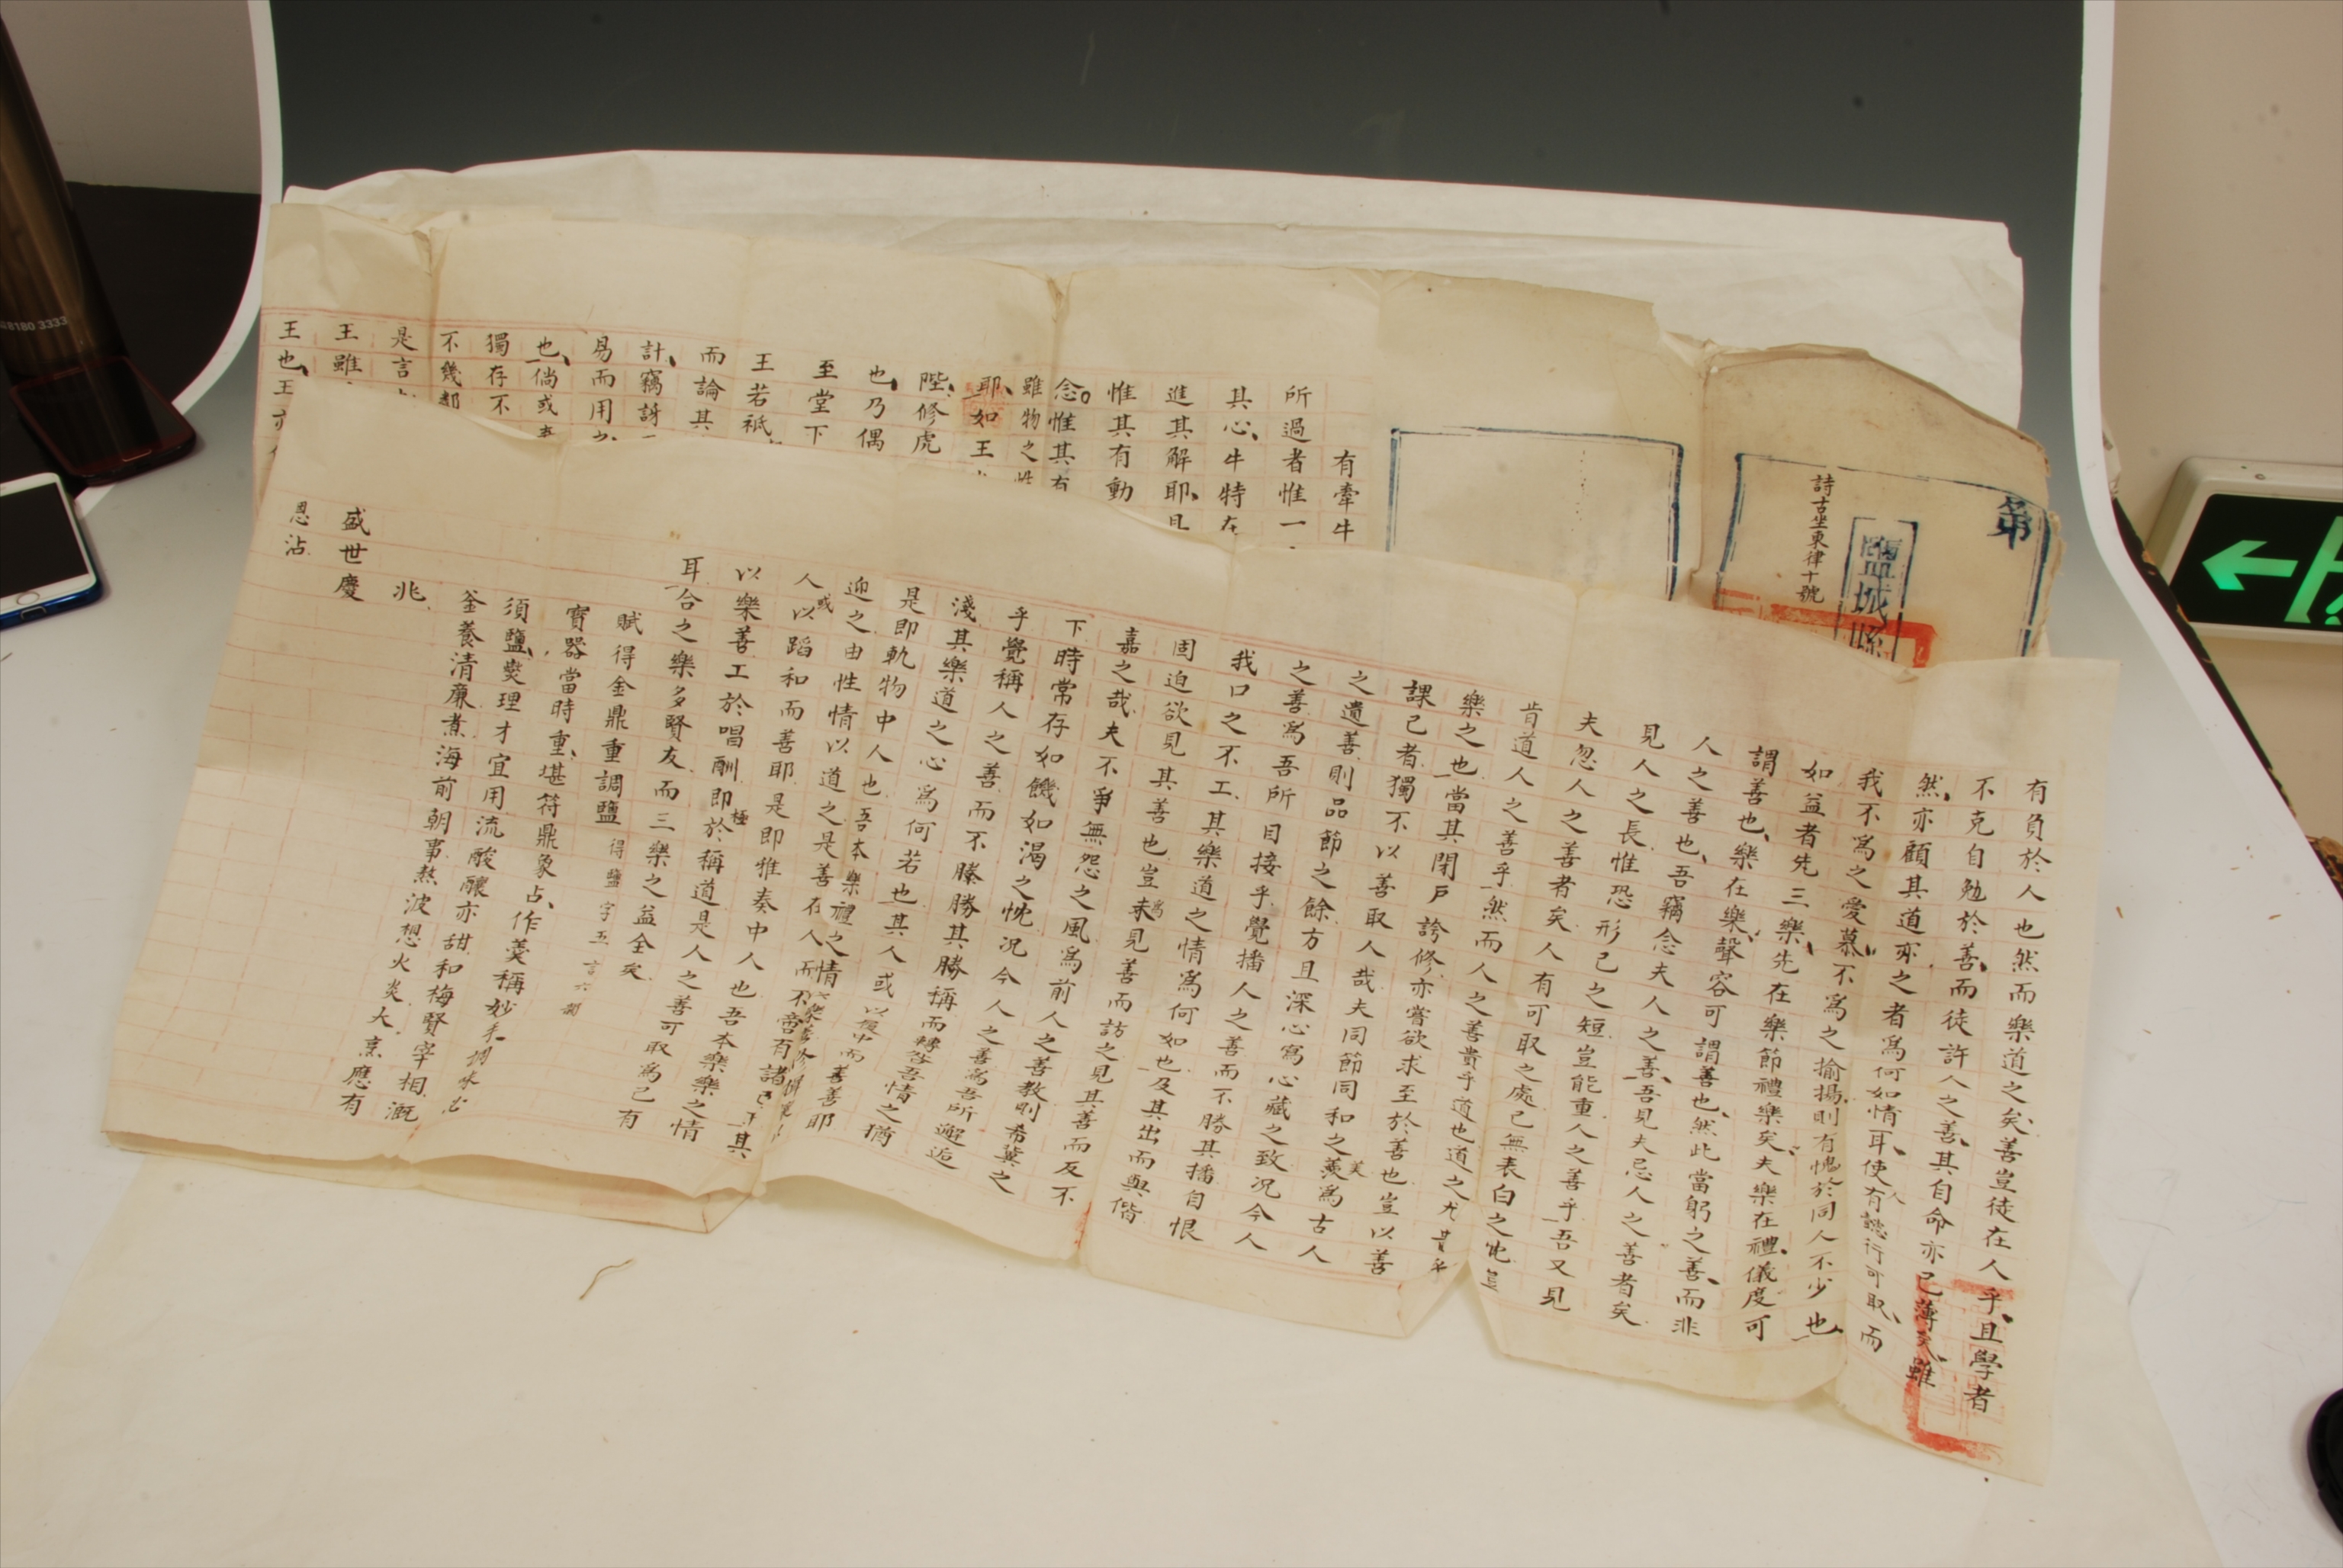 第
鹽城縣
詩古坐東律十號
有牽牛
所過者惟一
其心牛特在
進其解耶且
惟其有動
念惟其有
雖物之
耶如王
陛修虎
也乃偶
至堂下
王若祗
而論其
計竊訝
易而用之
也倘或
獨存不
不幾
是言
王雖
王也王亦
有負於人也然而樂道之矣善豈徒在人乎且學者
不克自勉於善而徒許人之善其自命亦已薄矣雖
然亦顧其道亦之者為何如情耳使有人懿行可取而
我不為之愛慕不為之揄揚則有愧於同人不少也
如益者先三樂先在樂節禮樂矣夫樂在禮儀度可
謂善也樂在樂聲容可謂善也然此當躬之善而非
人之善也吾竊念夫人之善吾見夫忌人之善者矣
見人之長惟恐形己之短豈能重人之善乎吾又見
夫忽人之善者矣人有可取之處己無表白之
肯道人之善乎然而人之善貴乎道也道之尤貴乎
樂之也當其閉戶誇修亦嘗欲求至於善也豈以善
課己者獨不以善取人哉夫同節同和之美為古人
之遺善則品節之餘方且深心寫心藏之致况今人
之善為吾所目接乎覺播人之善而不勝其播自恨
我口之不工其樂道之情為何如也及其出而與偕
固迫欲見其善也豈為未見善而訪之見其善而反不
嘉之哉夫不爭無怨之風為前人之善教則希冀之
下時常存如饑如渴之忱况今人之善為吾所邂逅
乎覺稱人之善而不勝其勝稱而轉咎吾情之猶
淺其樂道之心為何若也其人或以復中而善善耶
是即軌物中人也吾本樂禮之情
迎之由性情以道之是善在人而不啻有諸己
人或以蹈和而善耶是即雅奏中人也吾本樂樂之情
以樂善工於唱酬即極於稱道是人之善可取為己有
耳合之樂多賢友而三樂之益全矣
賦得金鼎重調鹽 得鹽字五言六韻
寶器當時重堪符鼎象占作羹稱妙手調味
須鹽燮理才宜用流酸釀亦甜和梅賢宰相溉
釜養清廉煮海前朝事熬波想火炎大烹應有
兆
盛世慶
恩沾
8180 3333